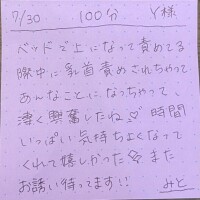 7/30 100分 Y様
ベッドで上になって責めてる
際中に乳首責めされちゃって
あんなことになっちゃって、
凄く興奮したね♡ 時間
いっぱい気持ちよくなって
くれて嬉しかった◇ また
お誘い待ってます!!
みと